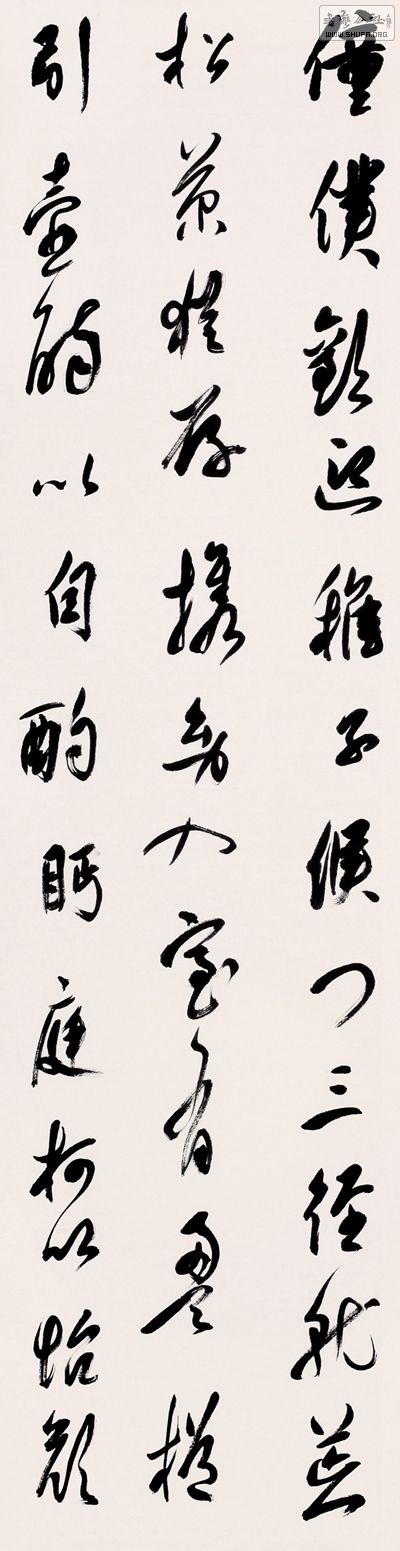 僮僕歡迎稚子候門三徑就荒
松菊猶存携幼入室有酒盈樽
引壺觴以自酌眄庭柯以怡顏
WWW.SHUFA.ORG